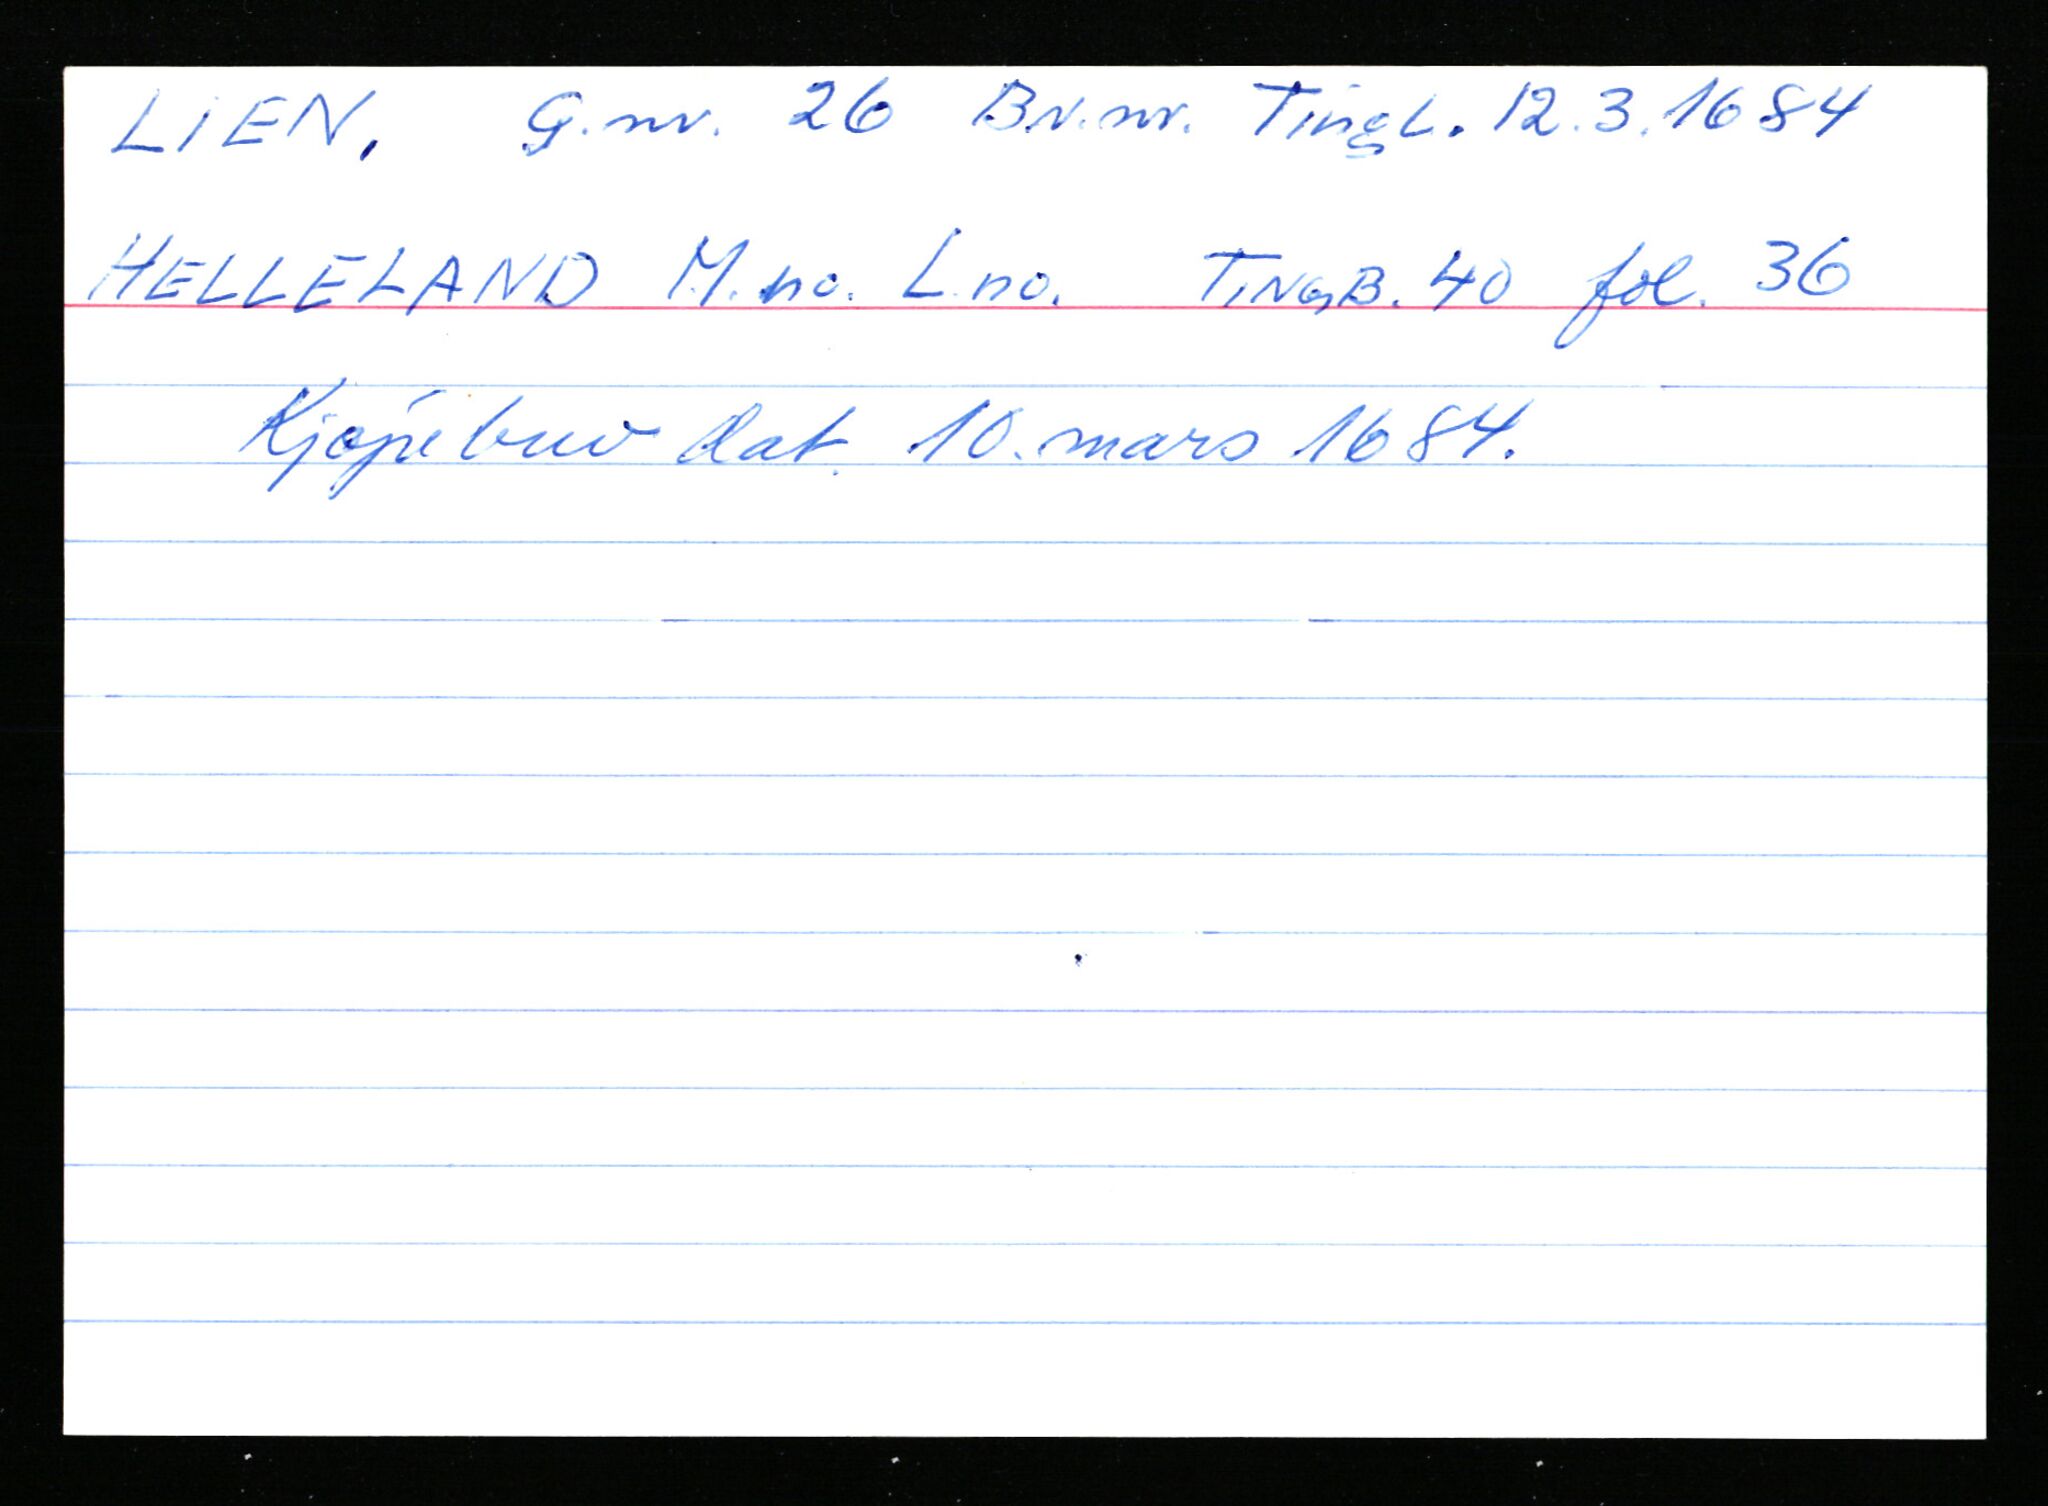 LIEN, G.nr. 26 Br.nr. Tingl. 12.3.1684
HELLELAND M.no. L.no. TINGB. 40 fol. 36
Kjøpebrev dat. 10. mars 1684.